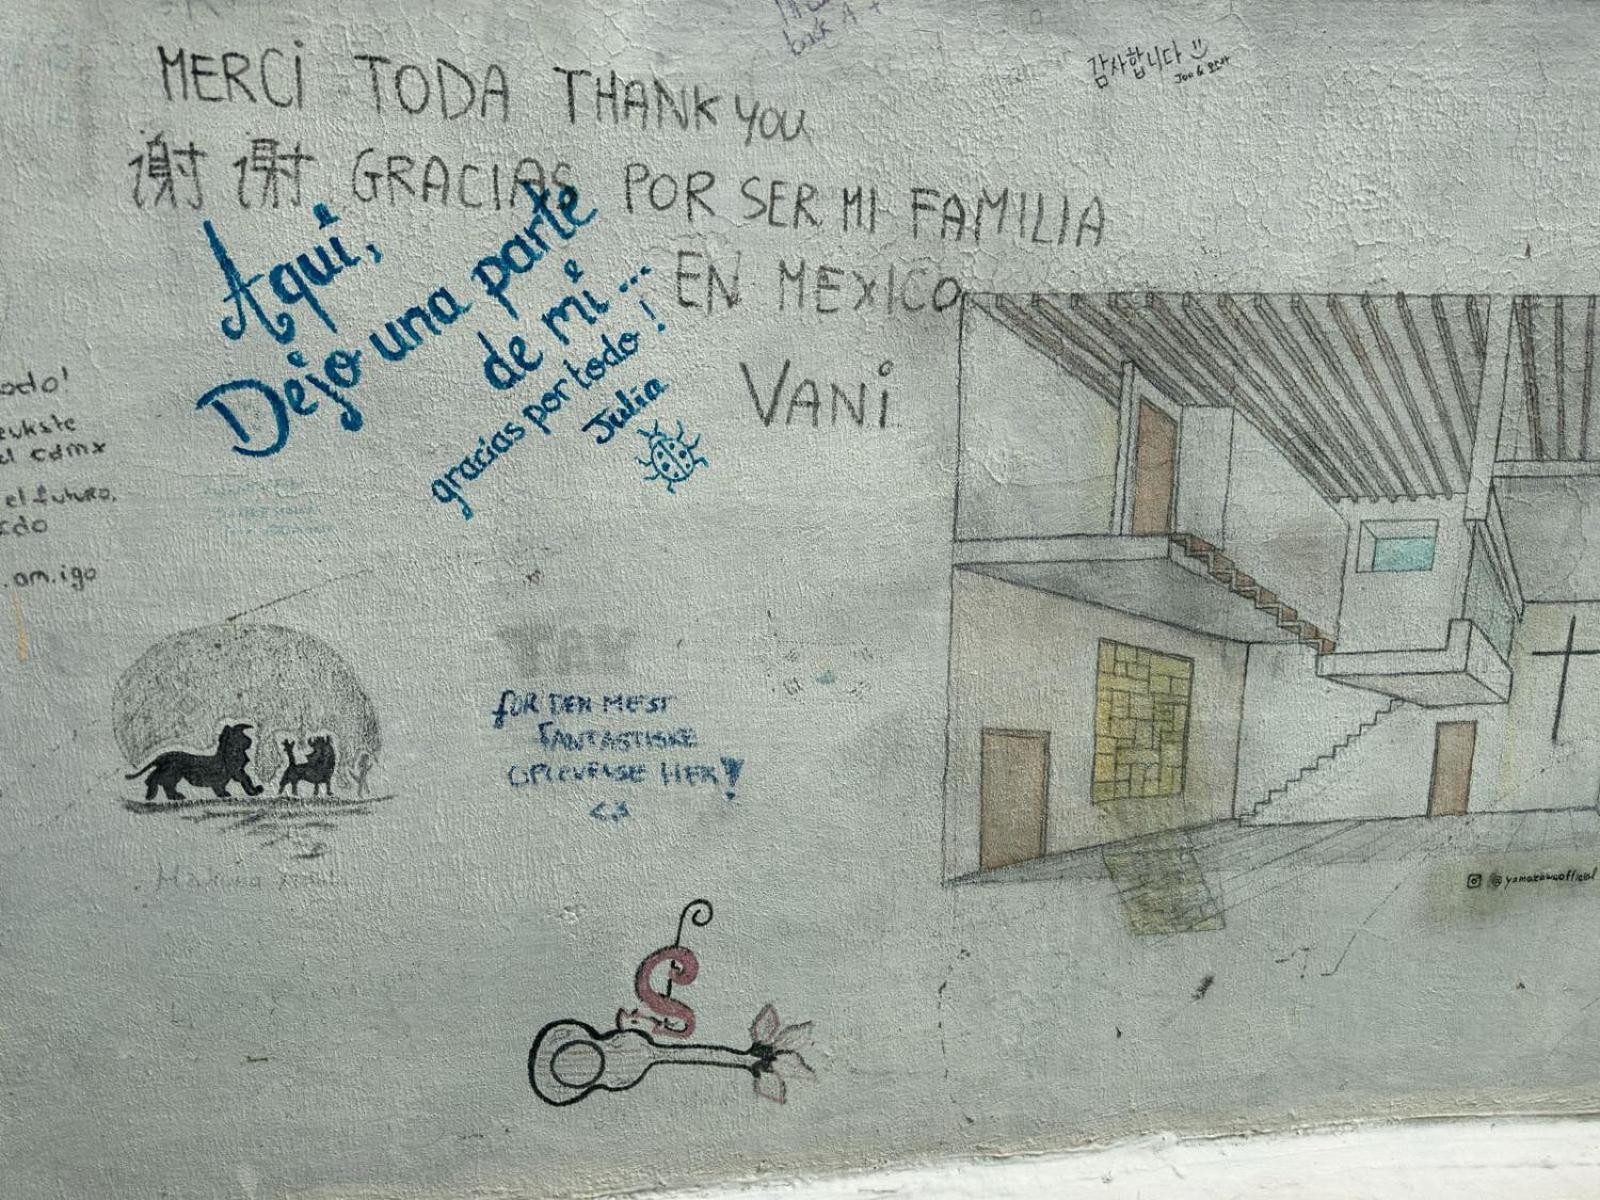 MERCI TODA THANK YOU
谢谢 GRACIAS POR SER MI FAMILIA
EN MEXICO
VANI
감사합니다
Aquí,
Dejo una parte
de mí...
gracias por todo!
Julia
cdmx
el futuro,
amigo
TAK
FOR DEN MEST
FANTASTISKE
OPLEVELSE HER!
<3
Hakuna
S
@yamazawaofficial